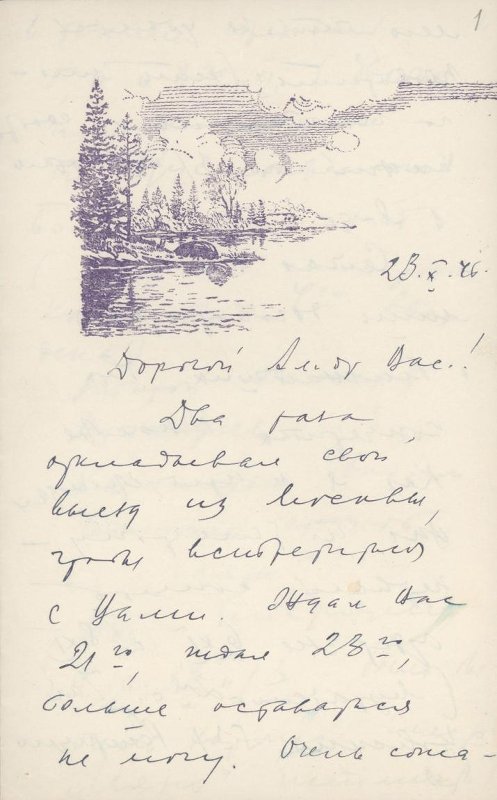 1
23.X.46.
Дорогой Ал-др Вас.!
Два раза
откладывал свой
выезд из Москвы,
чтобы встретиться
с Вами. Ждал Вас
21го, ждал 23го,
больше оставаться
не могу. Очень сожа-